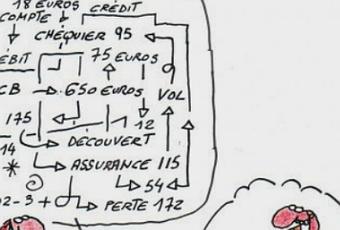 18 EUROS CRÉDIT
COMPTE
CHÉQUIER 95
ÉBIT 75 EUROS
CB 650 EUROS VOL
175 12
14 DÉCOUVERT
* ASSURANCE 115
54
2-3+ PERTE 172